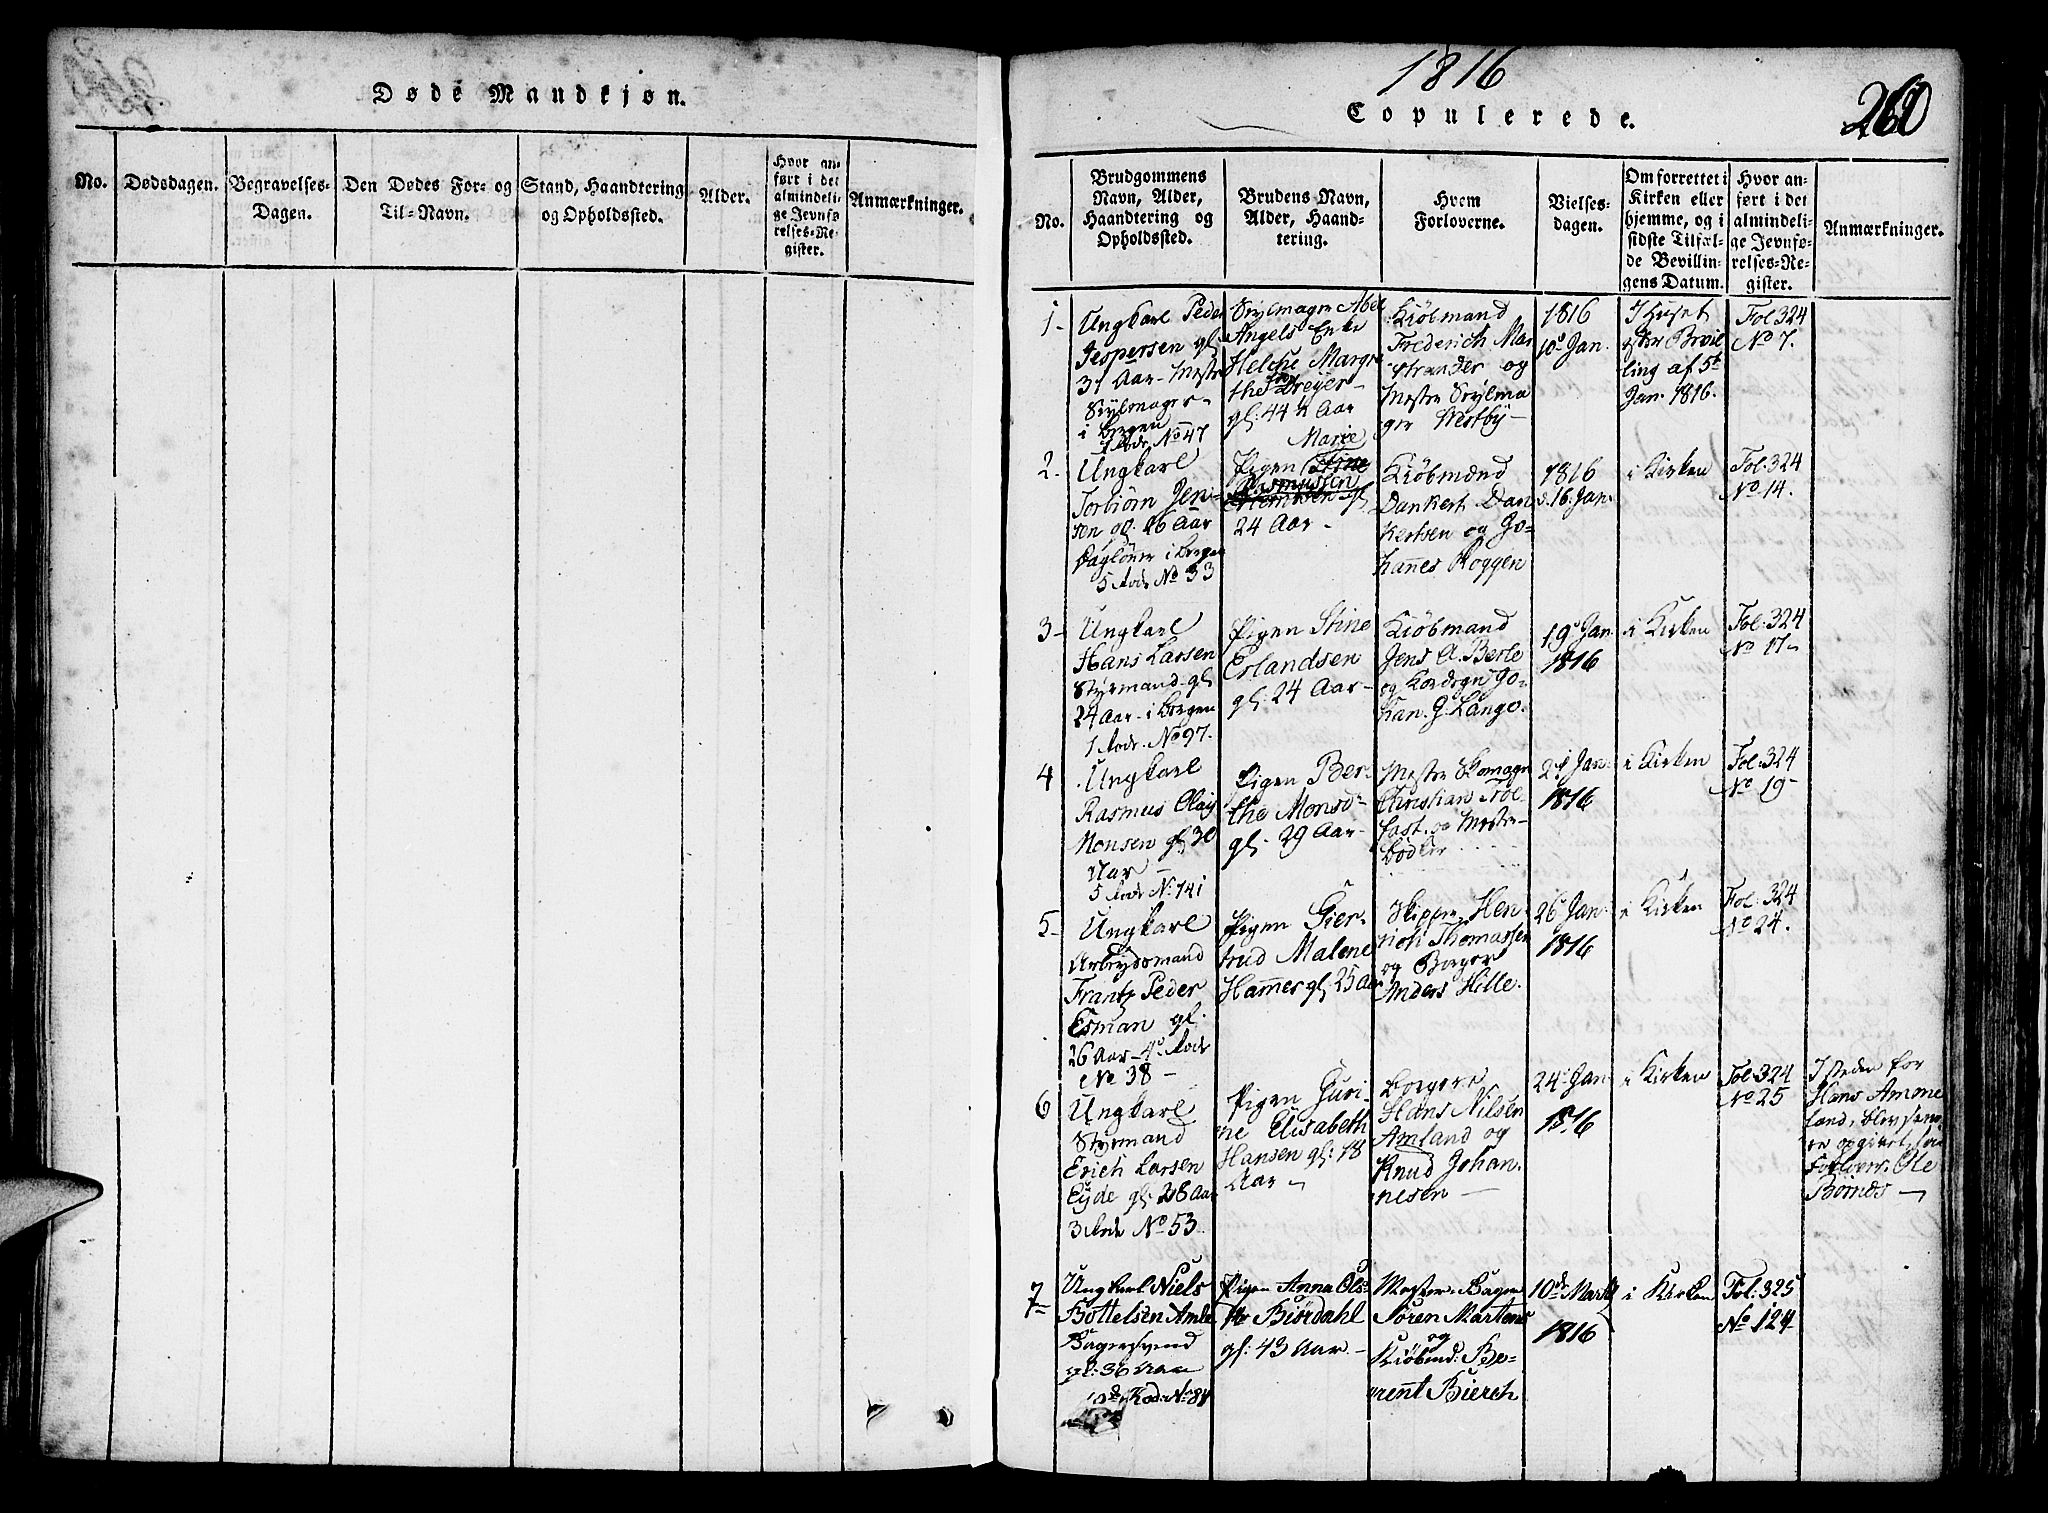 Døde Mandkjøn.
No.
Dødsdagen.
Begravelses-
Dagen.
Den Dødes For- og
Til-Navn.
Stand, Haandtering
og Opholdssted.
Alder.
Hvor an-
ført i det
almindeli-
ge Jevnfø-
relses-Re-
gister.
Anmærkninger.
1816
Copulerede.
260
No.
Brudgommens
Navn, Alder,
Haandtering og
Opholdssted.
Brudens Navn,
Alder, Haand-
tering.
Hvem
Forloverne.
Vielses-
dagen.
Om forrettet i
Kirken eller
hjemme, og i
sidste Tilfæl-
de Bevillin-
gens Datum.
Hvor an-
ført i det
almindeli-
ge Jevnfø-
relses-Re-
gister.
Anmærkninger.
1-
Ungkarl Peder
Jespersen gl.
31 Aar - Mester
Seylmager
i Bergen
Rode No 47
Seylmager Abel
Angels Enke
Helche Margre
the Dreyer
gl: 44 Aar
Kiöbmand
Frederich Mar
strander og
Mester Seylma
ger Westby-
1816
10 Jan.
I Huset
efter Bevil
ling af 5t
Jan. 1816.
Fol 324
No 7.
2-
Ungkarl
Torbiörn Jen-
sen gl: 26 Aar
Daglöner i Bergen
5 Rode No 33
Marie
Pigen Stine
Rasmussen
gl
24 Aar -
Kiöbmænd
Dankert Dan
kertsen og Jo-
hannes Roggen
1816
d. 16 Jan.
i Kirken
Fol. 324
No 14.
3-
Ungkarl
Hans Larsen
Styrmand gl
24 Aar - i Bergen
1 Rode No 97.
Pigen Stine
Erlandsen
gl: 24 Aar-
Kiöbmand
Jens A. Berle
og Kordegn Jo-
han. G. Lange.
19 Jan
1816
i Kirken
Fol: 324
No 17-
4
Ungkarl
Rasmus Olay
Monsen gl 30
Aar -
5 Rode No 141
Pigen Ber-
the Monsd-
gl. 29 Aar-
Mester Skomager
Christian Trol-
fast og Mester
Bödker
21 Jan:
1816
i Kirken
Fol: 324
No 19-
5-
Ungkarl
Arbeydsmand
Frantz Peder
Esman gl.
26 Aar - 4 Rode
No 38 -
Pigen Gier-
trud Malene
Hammer gl. 25 Aar
Skipper Hen-
rich Thomassen
og Borger
Anders Hille.
26 Jan:
1816
i Kirken
Fol: 324
No 24.
6
Ungkarl
Styrmand
Erich Larsen
Eyde gl. 26 Aar
3 Rode No 53.
Pigen Guri-
ne Elisabeth
Hansen gl: 18
Aar -
Borgere
Hans Nilsen
Amland og
Knud Johan-
nesen -
24 Jan
1816
i Kirken
Fol: 324
No 25
I steden for
Hans Amone
land, blev sene
re opgivet, som
Forlover. Ole
Börnes -
7-
Ungkarl Niels
Bottelsen Amla
Bagersvend
gl: 36 Aar
10de Rode No 84
Pigen Anna Ols-
Biördahl
gl: 43 Aar. -
Mester Bager
Sören Martens
og
Kiöbmd: Be-
rent Bierch
10de Martz
1816
i Kirken
Fol: 325
No 124